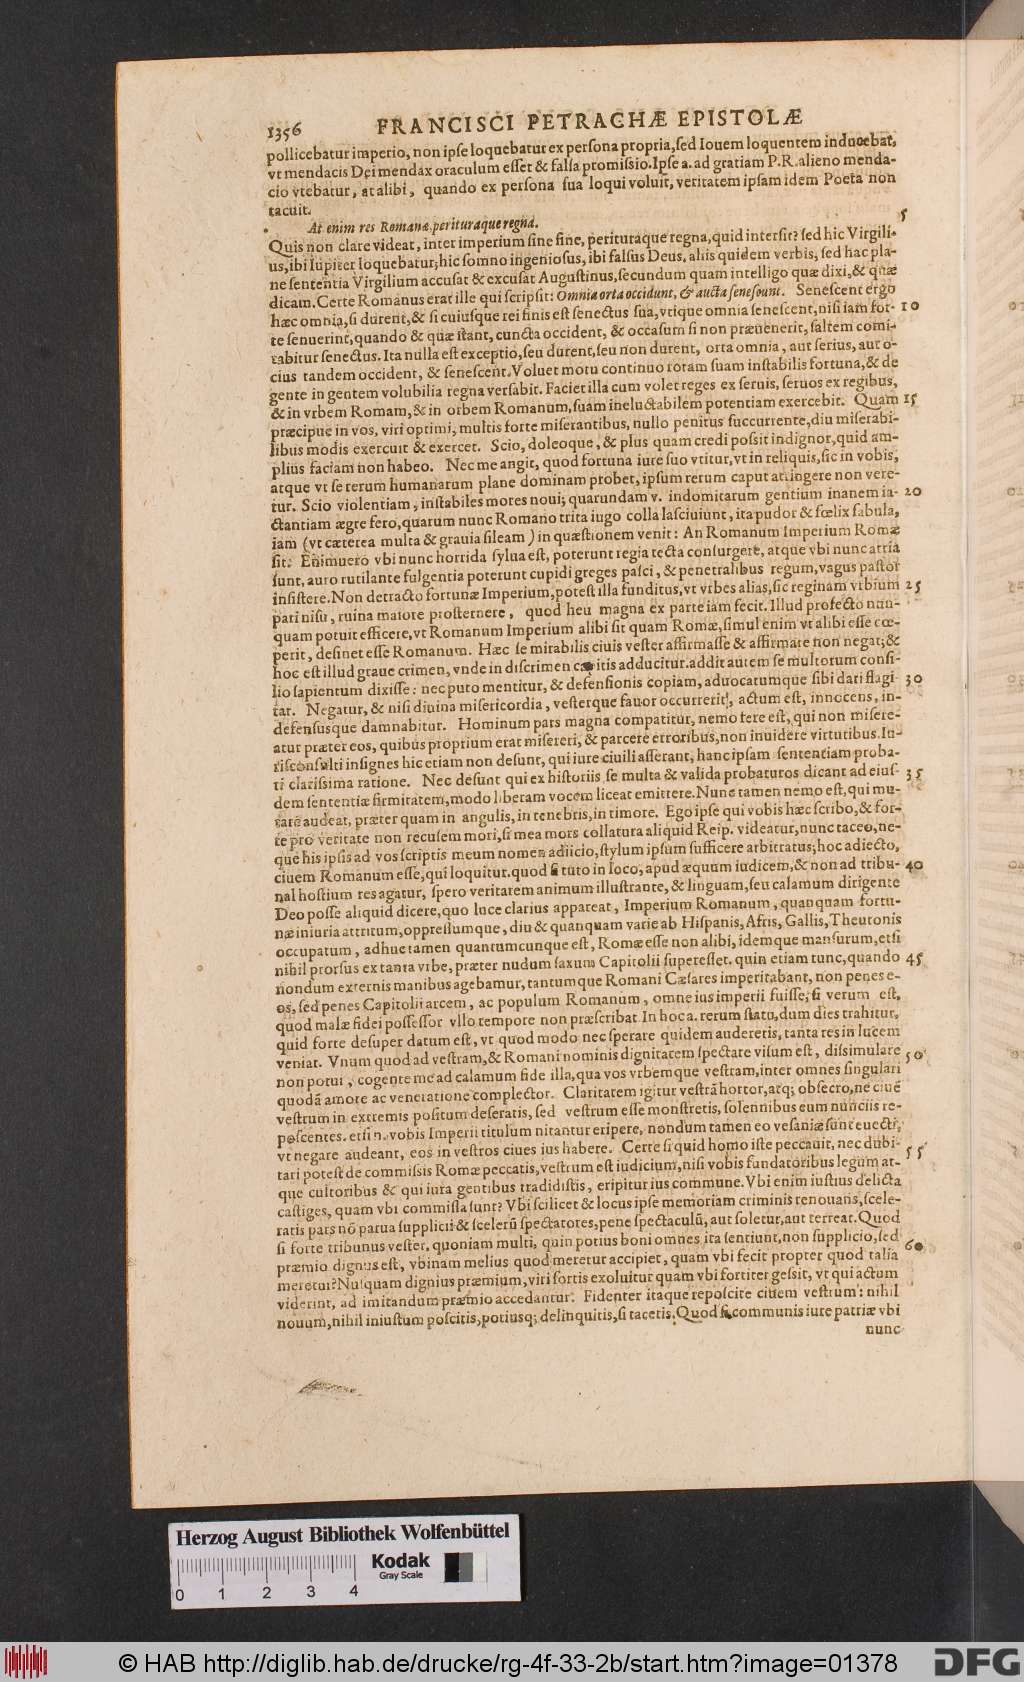 1356 FRANCISCI PETRACHÆ EPISTOLÆ
pollicebatur imperio, non ipse loquebatur ex persona propria, sed Iouem loquentem inducebat,
vt mendacis Dei mendax oraculum esset & falsa promissio. Ipse a. ad gratiam P.R. alieno menda-
cio vtebatur, at alibi, quando ex persona sua loqui voluit, veritatem ipsam idem Poeta non
tacuit.
At enim res Romanæ perituraque regna. 5
Quis non clare videat, inter imperium sine fine, perituraque regna, quid intersit? sed hic Virgili-
us, ibi Iupiter loquebatur; hic somno ingeniosus, ibi falsus Deus, aliis quidem verbis, sed hac pla-
ne sententia Virgilium accusat & excusat Augustinus, secundum quam intelligo quæ dixi, & quæ
dicam. Certe Romanus erat ille qui scripsit: Omnia orta occidunt, & aucta senescunt. Senescent ergo
hæc omnia, si durent, & si cuiusque rei finis est senectus sua, vtique omnia senescent, nisi iam for- 10
te senuerint, quando & quæ stant, cuncta occident, & occasum si non præuenerit, saltem comi-
tabitur senectus. Ita nulla est exceptio, seu durent, seu non durent, orta omnia, aut serius, aut o-
cius tandem occident, & senescent. Voluet motu continuo rotam suam instabilis fortuna, & de
gente in gentem volubilia regna versabit. Faciet illa cum volet reges ex seruis, seruos ex regibus,
& in vrbem Romam, & in orbem Romanum, suam ineluctabilem potentiam exercebit. Quam 15
præcipue in vos, viri optimi, multis forte miserantibus, nullo penitus succurrente, diu miserabi-
libus modis exercuit & exercet. Scio, doleoque, & plus quam credi possit indignor, quid am-
plius faciam non habeo. Nec me angit, quod fortuna iure suo vtitur, vt in reliquis, sic in vobis,
atque vt se rerum humanarum plane dominam probet, ipsum rerum caput attingere non vere-
tur. Scio violentiam, instabiles mores noui; quarundam v. indomitarum gentium inanem ia- 20
ctantiam ægre fero, quarum nunc Romano trita iugo colla lasciuiunt, ita pudor & fœlix fabula,
iam (vt cætera multa & grauia sileam) in quæstionem venit: An Romanum Imperium Romæ
sit? Enimuero vbi nunc horrida sylua est, poterunt regia tecta consurgere, atque vbi nunc atria
sunt, auro rutilante fulgentia poterunt cupidi greges pasci, & penetralibus regum, vagus pastor
insistere. Non detracto fortunæ Imperium, potest illa funditus, vt vrbes alias, sic reginam vrbium 25
pari nisu, ruina maiore prosternere, quod heu magna ex parte iam fecit. Illud profecto nun-
quam potuit efficere, vt Romanum Imperium alibi sit quam Romæ, simul enim vt alibi esse cœ-
perit, desinet esse Romanum. Hæc se mirabilis ciuis vester affirmasse & affirmare non negat; &
hoc est illud graue crimen, vnde in discrimen capitis adducitur. addit autem se multorum consi-
lio sapientum dixisse: nec puto mentitur, & defensionis copiam, aduocatumque sibi dari flagi- 30
tat. Negatur, & nisi diuina misericordia, vesterque fauor occurrerit, actum est, innocens, in-
defensusque damnabitur. Hominum pars magna compatitur, nemo fere est, qui non misere-
atur præter eos, quibus proprium erat misereri, & parcere erroribus, non inuidere virtutibus. Iu-
risconsulti insignes hic etiam non desunt, qui iure ciuili asserant, hanc ipsam sententiam proba-
ti clarissima ratione. Nec desunt qui ex historiis se multa & valida probaturos dicant ad eius- 35
dem sententiæ firmitatem, modo liberam vocem liceat emittere. Nunc tamen nemo est, qui mu-
tare audeat, præter quam in angulis, in tenebris, in timore. Ego ipse qui vobis hæc scribo, & for-
te pro veritate non recusem mori, si mea mors collatura aliquid Reip. videatur, nunc taceo, ne-
que his ipsis ad vos scriptis meum nomen adiicio, stylum ipsum sufficere arbitratus; hoc adiecto,
ciuem Romanum esse, qui loquitur. quod si tuto in loco, apud æquum iudicem, & non ad tribu- 40
nal hostium res agatur, spero veritatem animum illustrante, & linguam, seu calamum dirigente
Deo posse aliquid dicere, quo luce clarius appareat, Imperium Romanum, quanquam fortu-
næ iniuria attritum, oppressumque, diu & quanquam varie ab Hispanis, Afris, Gallis, Theutonis
occupatum, adhuc tamen quantumcunque est, Romæ esse non alibi, idemque mansurum, etsi
nihil prorsus ex tanta vrbe, præter nudum saxum Capitolii superesset. quin etiam tunc, quando 45
nondum externis manibus agebamur, tantumque Romani Cæsares imperitabant, non penes e-
os, sed penes Capitolii arcem, ac populum Romanum, omne ius imperii fuisse; si verum est,
quod malæ fidei possessor vllo tempore non præscribat. In hoc a. rerum statu, dum dies trahitur,
quid forte desuper datum est, vt quod modo nec sperare quidem auderetis, tanta res in lucem
veniat. Vnum quod ad vestram, & Romani nominis dignitatem spectare visum est, dissimulare 50
non potui, cogente me ad calamum fide illa, qua vos vrbemque vestram, inter omnes singulari
quodã amore ac veneratione complector. Claritatem igitur vestrã hortor, atq; obsecro, ne ciuẽ
vestrum in extremis positum deseratis, sed vestrum esse monstretis, solennibus eum nunciis re-
poscentes. etsi n. vobis Imperii titulum nitantur eripere, nondum tamen eo vesaniæ sunt euecti,
vt negare audeant, eos in vestros ciues ius habere. Certe si quid homo iste peccauit, nec dubi- 55
tari potest de commissis Romæ peccatis, vestrum est iudicium, nisi vobis fundatoribus legum at-
que cultoribus & qui iura gentibus tradidistis, eripitur ius commune. Vbi enim iustius delicta
castiges, quam vbi commissa sunt? Vbi scilicet & locus ipse memoriam criminis renouans, scele-
ratis pars nõ parua supplicii & scelerũ spectatores, pene spectaculũ, aut soletur, aut terreat. Quod
si forte tribunus vester, quoniam multi, quin potius boni omnes ita sentiunt, non supplicio, sed 60
præmio dignus est, vbinam melius quod meretur accipiet, quam vbi fecit propter quod talia
meretur? Nusquam dignius præmium, viri fortis exoluitur quam vbi fortiter gessit, vt qui actum
viderint, ad imitandum præmio accedantur. Fidenter itaque reposcite ciuem vestrum: nihil
nouum, nihil iniustum poscitis, potiusq; delinquitis, si tacetis. Quod si communis iure patriæ vbi
nunc
Herzog August Bibliothek Wolfenbüttel
Kodak
Gray Scale
0 1 2 3 4
© HAB http://diglib.hab.de/drucke/rg-4f-33-2b/start.htm?image=01378 DFG